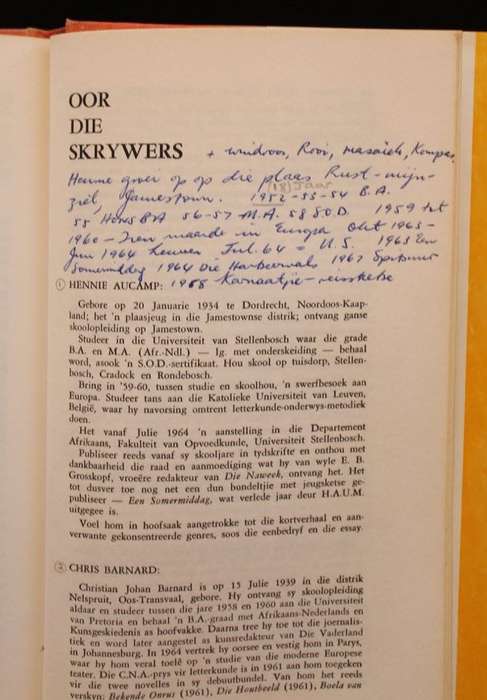 OOR
DIE
SKRYWERS + windroos, Rooi, masaïek, Kompas,
Hennie groei op op die plaas Rust-mijn-
ziel, Jamestown. (18) Jaar 1952-53-54 B.A.
55 Hons BA 56-57 M.A. 58 SOD. 1959 tot
1960 - Tien maande in Europa Okt 1963-
Jun 1964 Leuven Jul. 64 = U.S. 1963 Een
Somermiddag 1964 Die Hartseerwals 1967 Spitsuur
① HENNIE AUCAMP: 1968 Karnaatjie - reissketse
Gebore op 20 Januarie 1934 te Dordrecht, Noordoos-Kaap-
land; het 'n plaasjeug in die Jamestownse distrik; ontvang ganse
skoolopleiding op Jamestown.
Studeer in die Universiteit van Stellenbosch waar die grade
B.A. en M.A. (Afr.-Ndl.) — lg. met onderskeiding — behaal
word, asook 'n S.O.D.-sertifikaat. Hou skool op tuisdorp, Stellen-
bosch, Cradock en Rondebosch.
Bring in '59-60, tussen studie en skoolhou, 'n swerfbesoek aan
Europa. Studeer tans aan die Katolieke Universiteit van Leuven,
België, waar hy navorsing omtrent letterkunde-onderwys-metodiek
doen.
Het vanaf Julie 1964 'n aanstelling in die Departement
Afrikaans, Fakulteit van Opvoedkunde, Universiteit Stellenbosch.
Publiseer reeds vanaf sy skooljare in tydskrifte en onthou met
dankbaarheid die raad en aanmoediging wat hy van wyle E. B.
Grosskopf, vroeëre redakteur van Die Naweek, ontvang het. Het
tot dusver toe nog net een dun bundeltjie met jeugsketse ge-
publiseer — Een Somermiddag, wat verlede jaar deur H.A.U.M.
uitgegee is.
Voel hom in hoofsaak aangetrokke tot die kortverhaal en aan-
verwante gekonsentreerde genres, soos die eenbedryf en die essay.
② CHRIS BARNARD:
Christian Johan Barnard is op 15 Julie 1939 in die distrik
Nelspruit, Oos-Transvaal, gebore. Hy ontvang sy skoolopleiding
aldaar en studeer tussen die jare 1958 en 1960 aan die Universiteit
van Pretoria en behaal 'n B.A.-graad met Afrikaans-Nederlands en
Kunsgeskiedenis as hoofvakke. Daarna tree hy toe tot die joernalis-
tiek en word later aangestel as kunsredakteur van Die Vaderland
in Johannesburg. In 1964 vertrek hy oorsee en vestig hom in Parys,
waar hy hom veral toelê op 'n studie van die moderne Europese
teater. Die C.N.A.-prys vir letterkunde is in 1961 aan hom toegeken
vir die twee novelles in sy debuutbundel. Van hom het reeds
verskyn: Bekende Onrus (1961), Die Houtbeeld (1961), Boela van